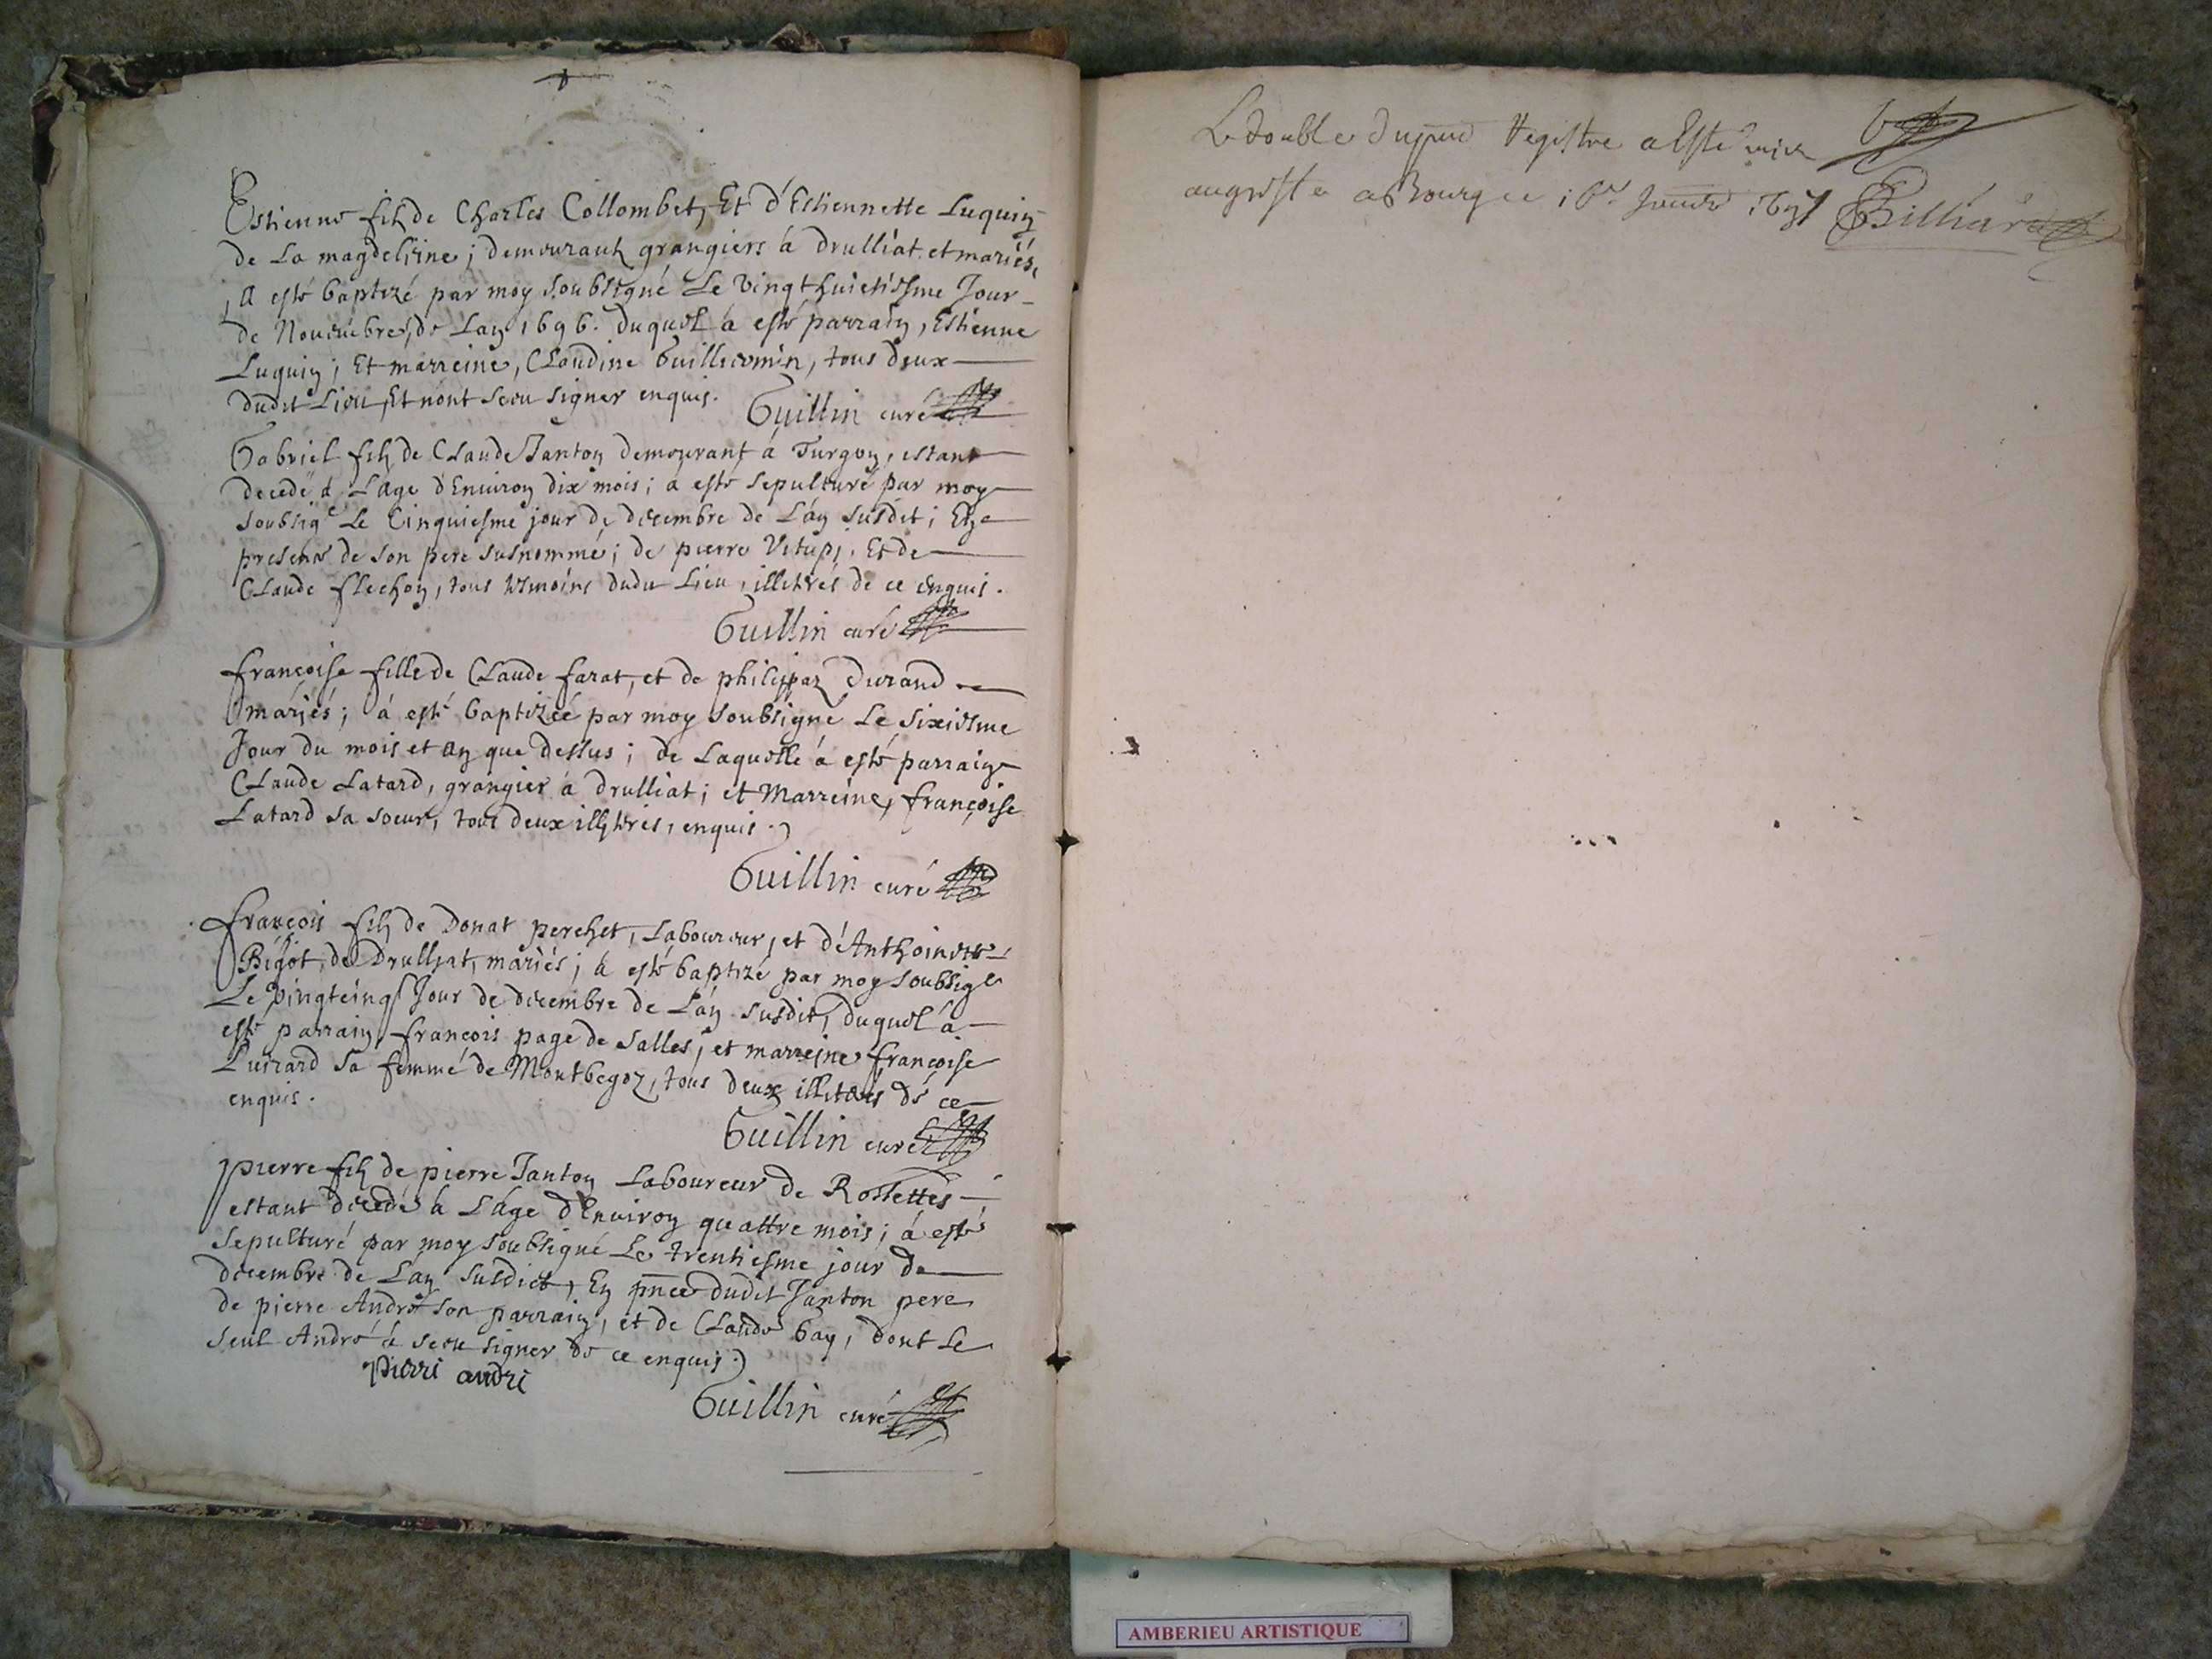 Estienne fils de Charles Collombet, Et d'Estiennette Luquin
de La magdeleine ; demeurants grangiers à drulliat et mariés,
A esté baptizé par moy soubsigné Le vingt huictiesme Jour
de Novembre, de Lan 1696. duquel a esté parrain, Estienne
Luquin ; Et marreine, Claudine Guillecomin, tous deux
dudit Lieu, Et n'ont sceu signer enquis.
Guillin curé
Gabriel fils de Claude Janton demeurant à Turgon, estant
decedé à L'age d'Environ dix mois ; a esté sepulturé par moy
soubsigé Le Cinquiesme jour de decembre de L'an susdit ; En
presence de son pere susnommé ; de pierre Vitupi, Et de
Claude flechon, tous tesmoins dudit Lieu, illetrés de ce enquis.
Guillin curé
françoise fille de Claude farat, et de philippaz Durand
mariés ; à esté baptizée par moy soubsigné Le sixiesme
Jour du mois et an que dessus ; de Laquelle à esté parrain
Claude Latard, grangier à drulliat ; et Marreine, françoise
Latard sa soeur, tous deux illetrés, enquis.
Guillin curé
françois fils de Donat perchet, Laboureur, et d'Anthoinette
Bigot, de Drulliat, mariés ; à esté baptizé par moy soubsigé
Le vingtcinq Jour de decembre de L'an susdit, duquel à
esté parrain, françois page de Salles, et marreine françoise
sa femme de Montbegoz, tous deux illetrés de ce
enquis.
Guillin curé
pierre fils de pierre Janton Laboureur de Rossettes
estant decedé à L'age d'Environ quattre mois ; à esté
sepulturé par moy soubsigné Le trentiesme jour de
decembre de L'an susdict, En pnce dudit Janton pere
de pierre André son parrain, et de Claude Gay, dont Le
seul André à sceu signer de ce enquis.
pierre andre
Guillin curé
Le double du pnt Registre a Esté mis
au greffe a Bourg ce Janvier 1697 Billiard
AMBERIEU ARTISTIQUE